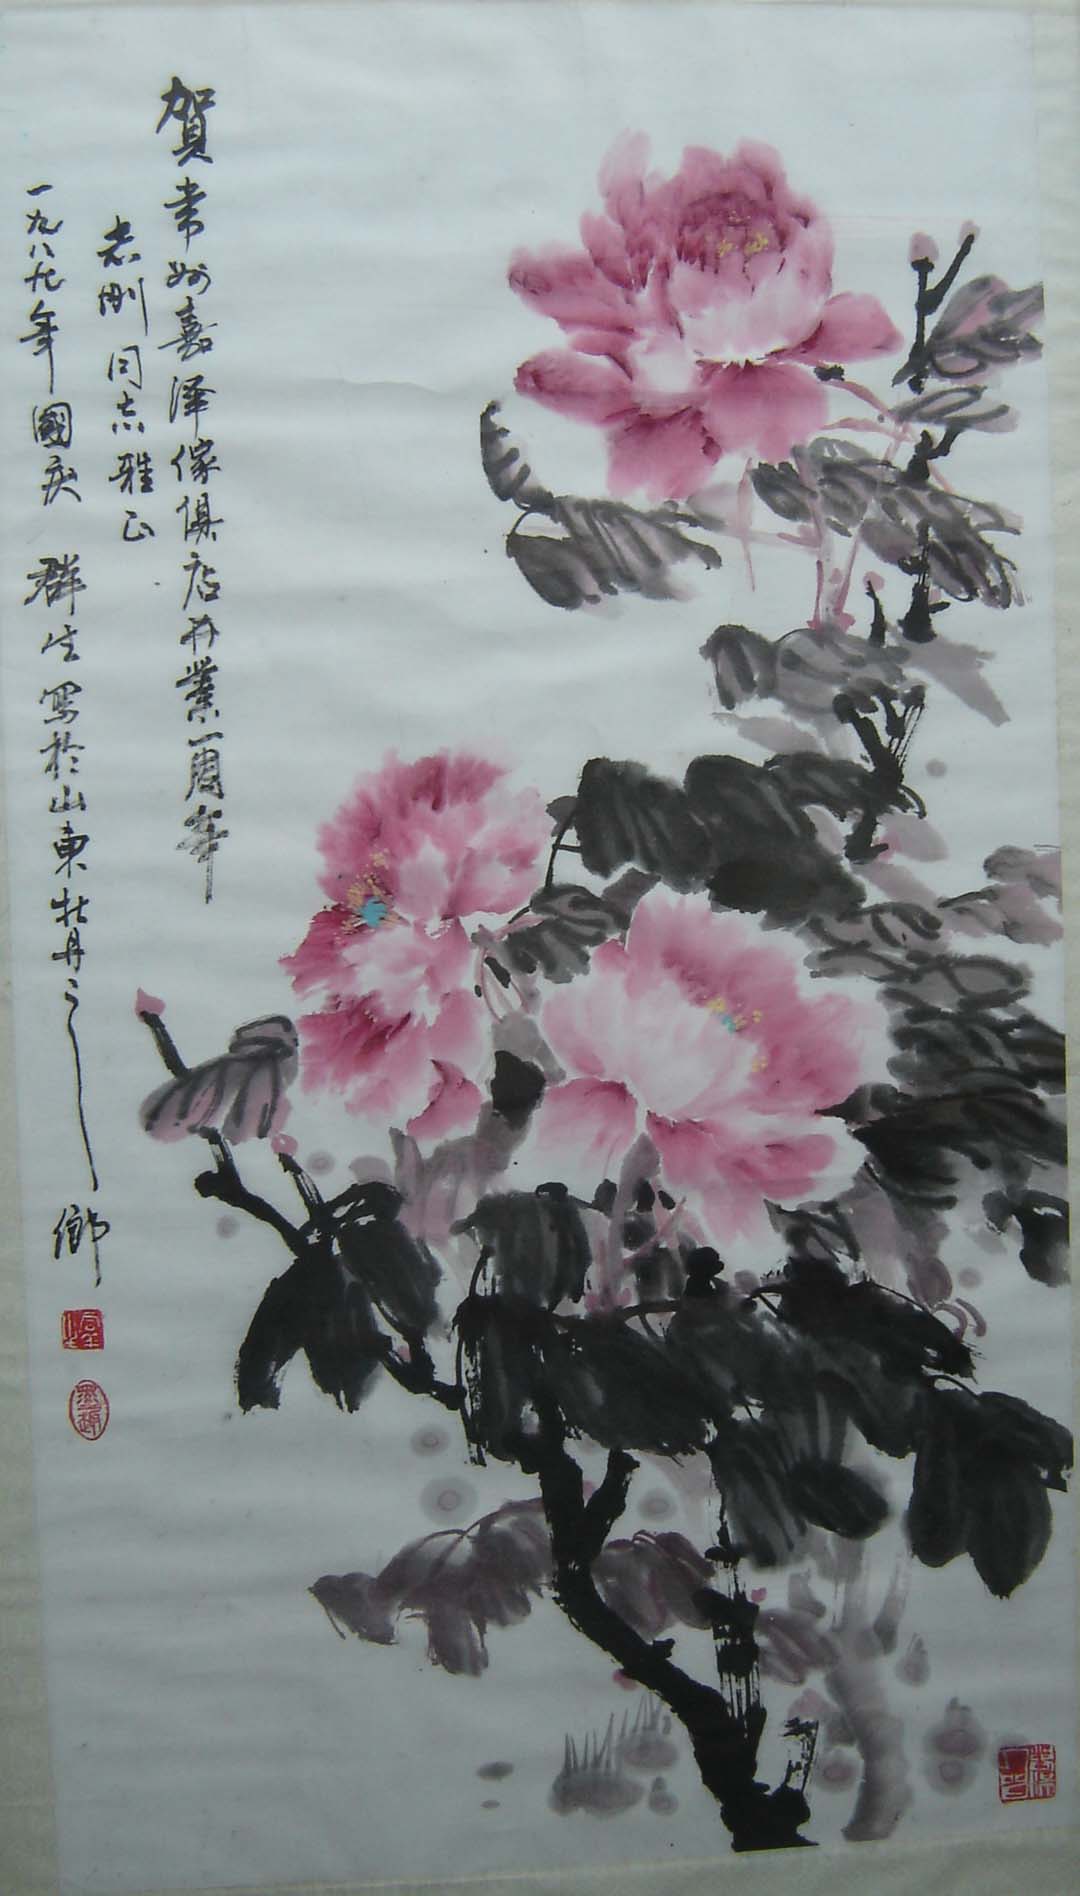 賀常州嘉澤傢俱店开業一周年
志刚同志雅正
一九八九年國庆 群生寫於山東牡丹之鄉